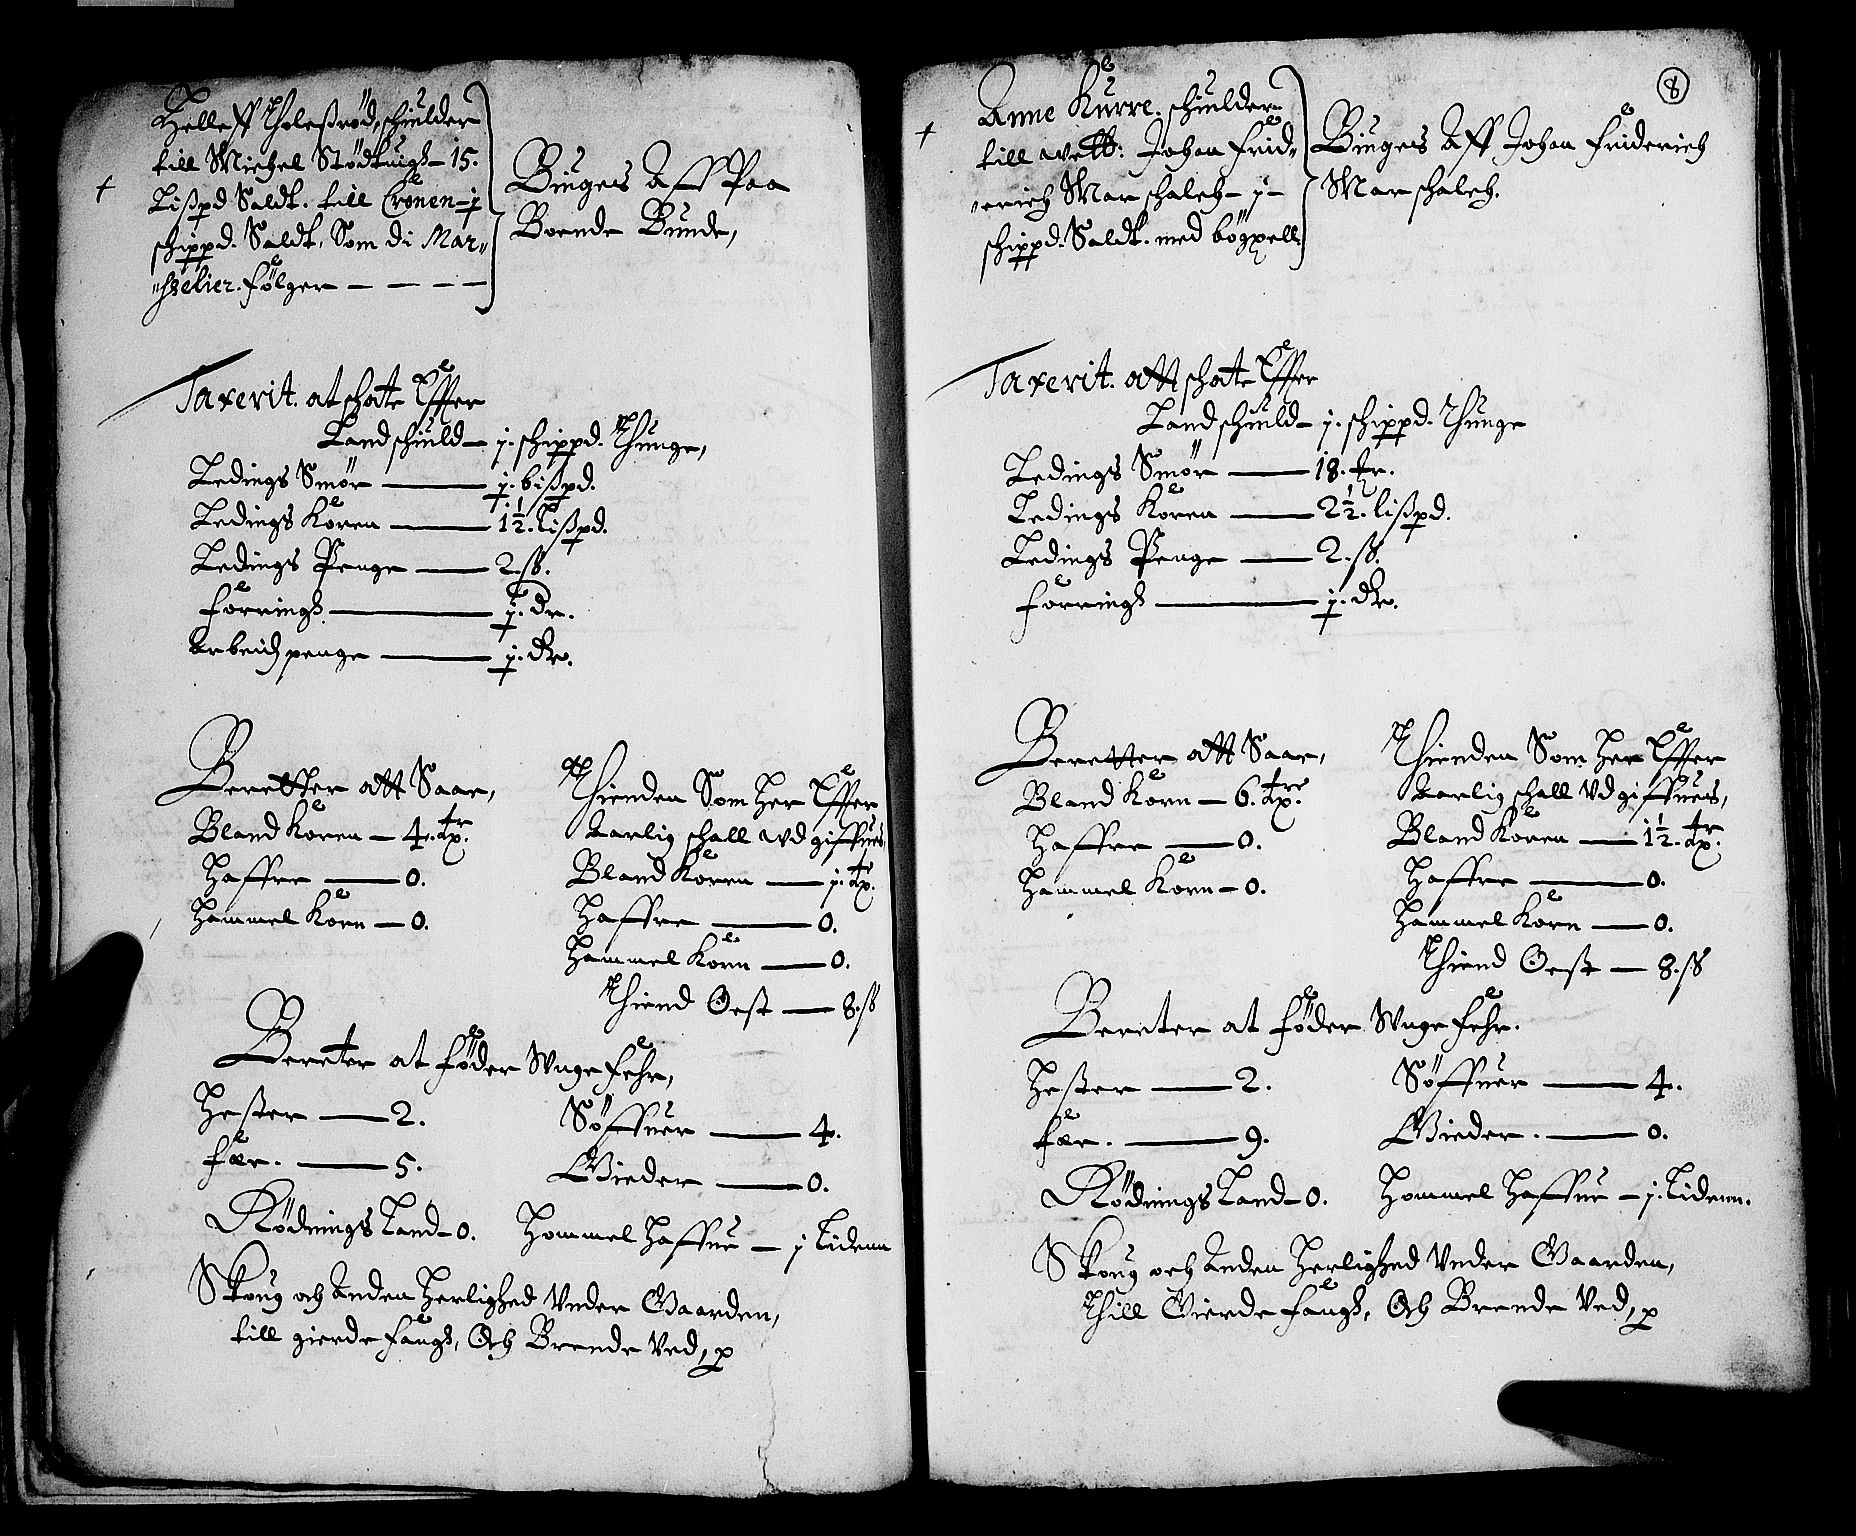 Helleff Tholeßrød, schiulder
till Michel Stødtuigs - 15.
Lißpd Saldt. till Cronen - j
schippd. Saldt, Som di Mar„
„hselier. følger - - - -
Biuges Aff Paa
Boende Bunde,
Taxerit. at schate Effter
Landschiuld - j. schippd. Thunge,
Ledings Smør - j. bißpd.
Ledings Koren - 1½. lißpd.
Ledings Penge - 2. ß.
forrings - j. Dr.
Arbeidspenge - j. Dr.
Beretter att Saae,
Bland Koren - 4. tr
Haffre - 0.
Hammel Korn - 0.
Thienden Som Her Effter
Aarlig schall wdgiffues
Bland Koren - j. tr
Haffre - 0.
Hammel Korn - 0.
Thiend Oest - 8. ß
Bereter at føder Wngefehr,
Hester - 2.
fær. - 5.
Søffuer - 4.
Gieder - 0.
Rødnings Land - 0.
Hommel Haffue - j Liden
Skoug och Anden Herlighed Vnder Gaarden,
till gierdefangs, Och Brende Ved, p
8
Anne Kurre. schiulder
till welb: Johan frid„
„erich Marschalch - j -
schippd. Saldt. med bögxell
Biuges Aff Johan friderich
Marschalch.
Taxerit. att schate Effter
Landschiuld - j. schippd. Thunge
Ledings Smør - 18. tr.
Ledings Koren - 2½. lißpd.
Ledings Penge - 2. ß.
forrings - j. Dr.
Beretter att Saae,
Bland Korn - 6. tr
Haffre - 0.
Hammel Korn - 0.
Thienden Som Her Effter
Aarlig schall Vdgiffues,
Bland Koren - 1½. tr
Haffre - 0.
Hammel Korn - 0.
Thiend Oest - 8. ß
Bereter at føder Wngefehr.
Hester - 2.
fær. - 9.
Søffuer - 4.
Gieder. - 0.
Rødnings Land - 0.
Hommel Haffue - j. Liden.
Skoug och Anden Herlighed Vnder Gaarden,
Thill Gierdefangs, Och Brende Ved, p